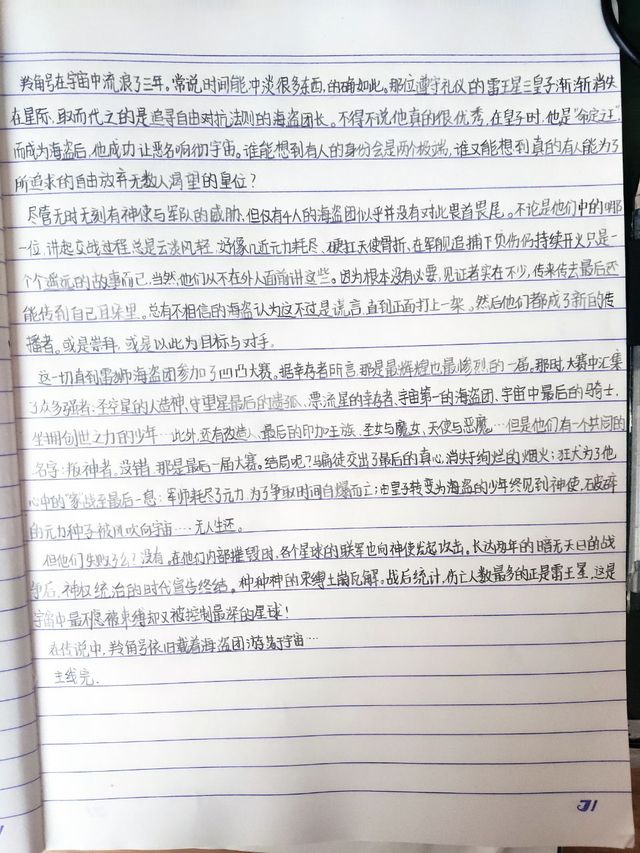 羚角号在宇宙中流浪了三年。常说时间能冲淡很多东西,的确如此。那位遵守礼仪的雷王星三皇子渐渐消失
在星际,取而代之的是追寻自由对抗法则的海盗团长。不得不说他真的很优秀,在皇子时,他是“命定之王”,
而成为海盗后,他成功让恶名响彻宇宙。谁能想到有人的身份会是两个极端,谁又能想到真的有人能为了
所追求的自由放弃无数人渴望的皇位?
尽管无时无刻有神使与军队的威胁,但仅有4人的海盗团似乎并没有对此畏首畏尾。不论是他们中的哪
一位,讲起交战过程总是云淡风轻,好像几近元力耗尽、硬扛天使骨折、在军舰追捕下负伤仍持续开火只是一
个个遥远的故事而已,当然,他们从不在外人面前讲这些。因为根本没有必要,见证者实在不少,传来传去最后还
能传到自己耳朵里。总有不相信的海盗认为这不过是谎言,直到正面打上一架。然后他们都成了新的传
播者。或是崇拜,或是以此为目标与对手。
这一切直到雷狮海盗团参加了凹凸大赛。据幸存者所言,那是最辉煌也最惨烈的一届。那时,大赛中汇集
了众多强者:圣空星的人造神、守望星最后的遗孤、票流星的幸存者、宇宙第一的海盗团、宇宙中最后的骑士,
使用创世之力的少年…此外,还有改造人、最后的印加王族、圣女与魔女、天使与恶魔…但是他们有一个共同的
名字:叛神者。没错,那是最后一届大赛。结局呢?骗徒交出了最后的真心,消失于绚烂的烟火;狂犬为了他
心中的“家”战至最后一息;军师耗尽了元力,为了争取时间自爆而亡;由皇子转变为海盗的少年终见到神使,破碎
的元力种子被风吹向宇宙…无人生还。
但他们失败了么?没有,在他们内部摧毁时,各个星球的联军也向神使发起攻击。长达两年的暗无天日的战
争后,神权统治的时代宣告终结。种种神的束缚土崩瓦解。战后统计,伤亡人数最多的正是雷王星,这是
宇宙中最不愿被束缚却又被控制最深的星球!
在传说中,羚角号依旧载着海盗团游荡于宇宙…
主线完.
31